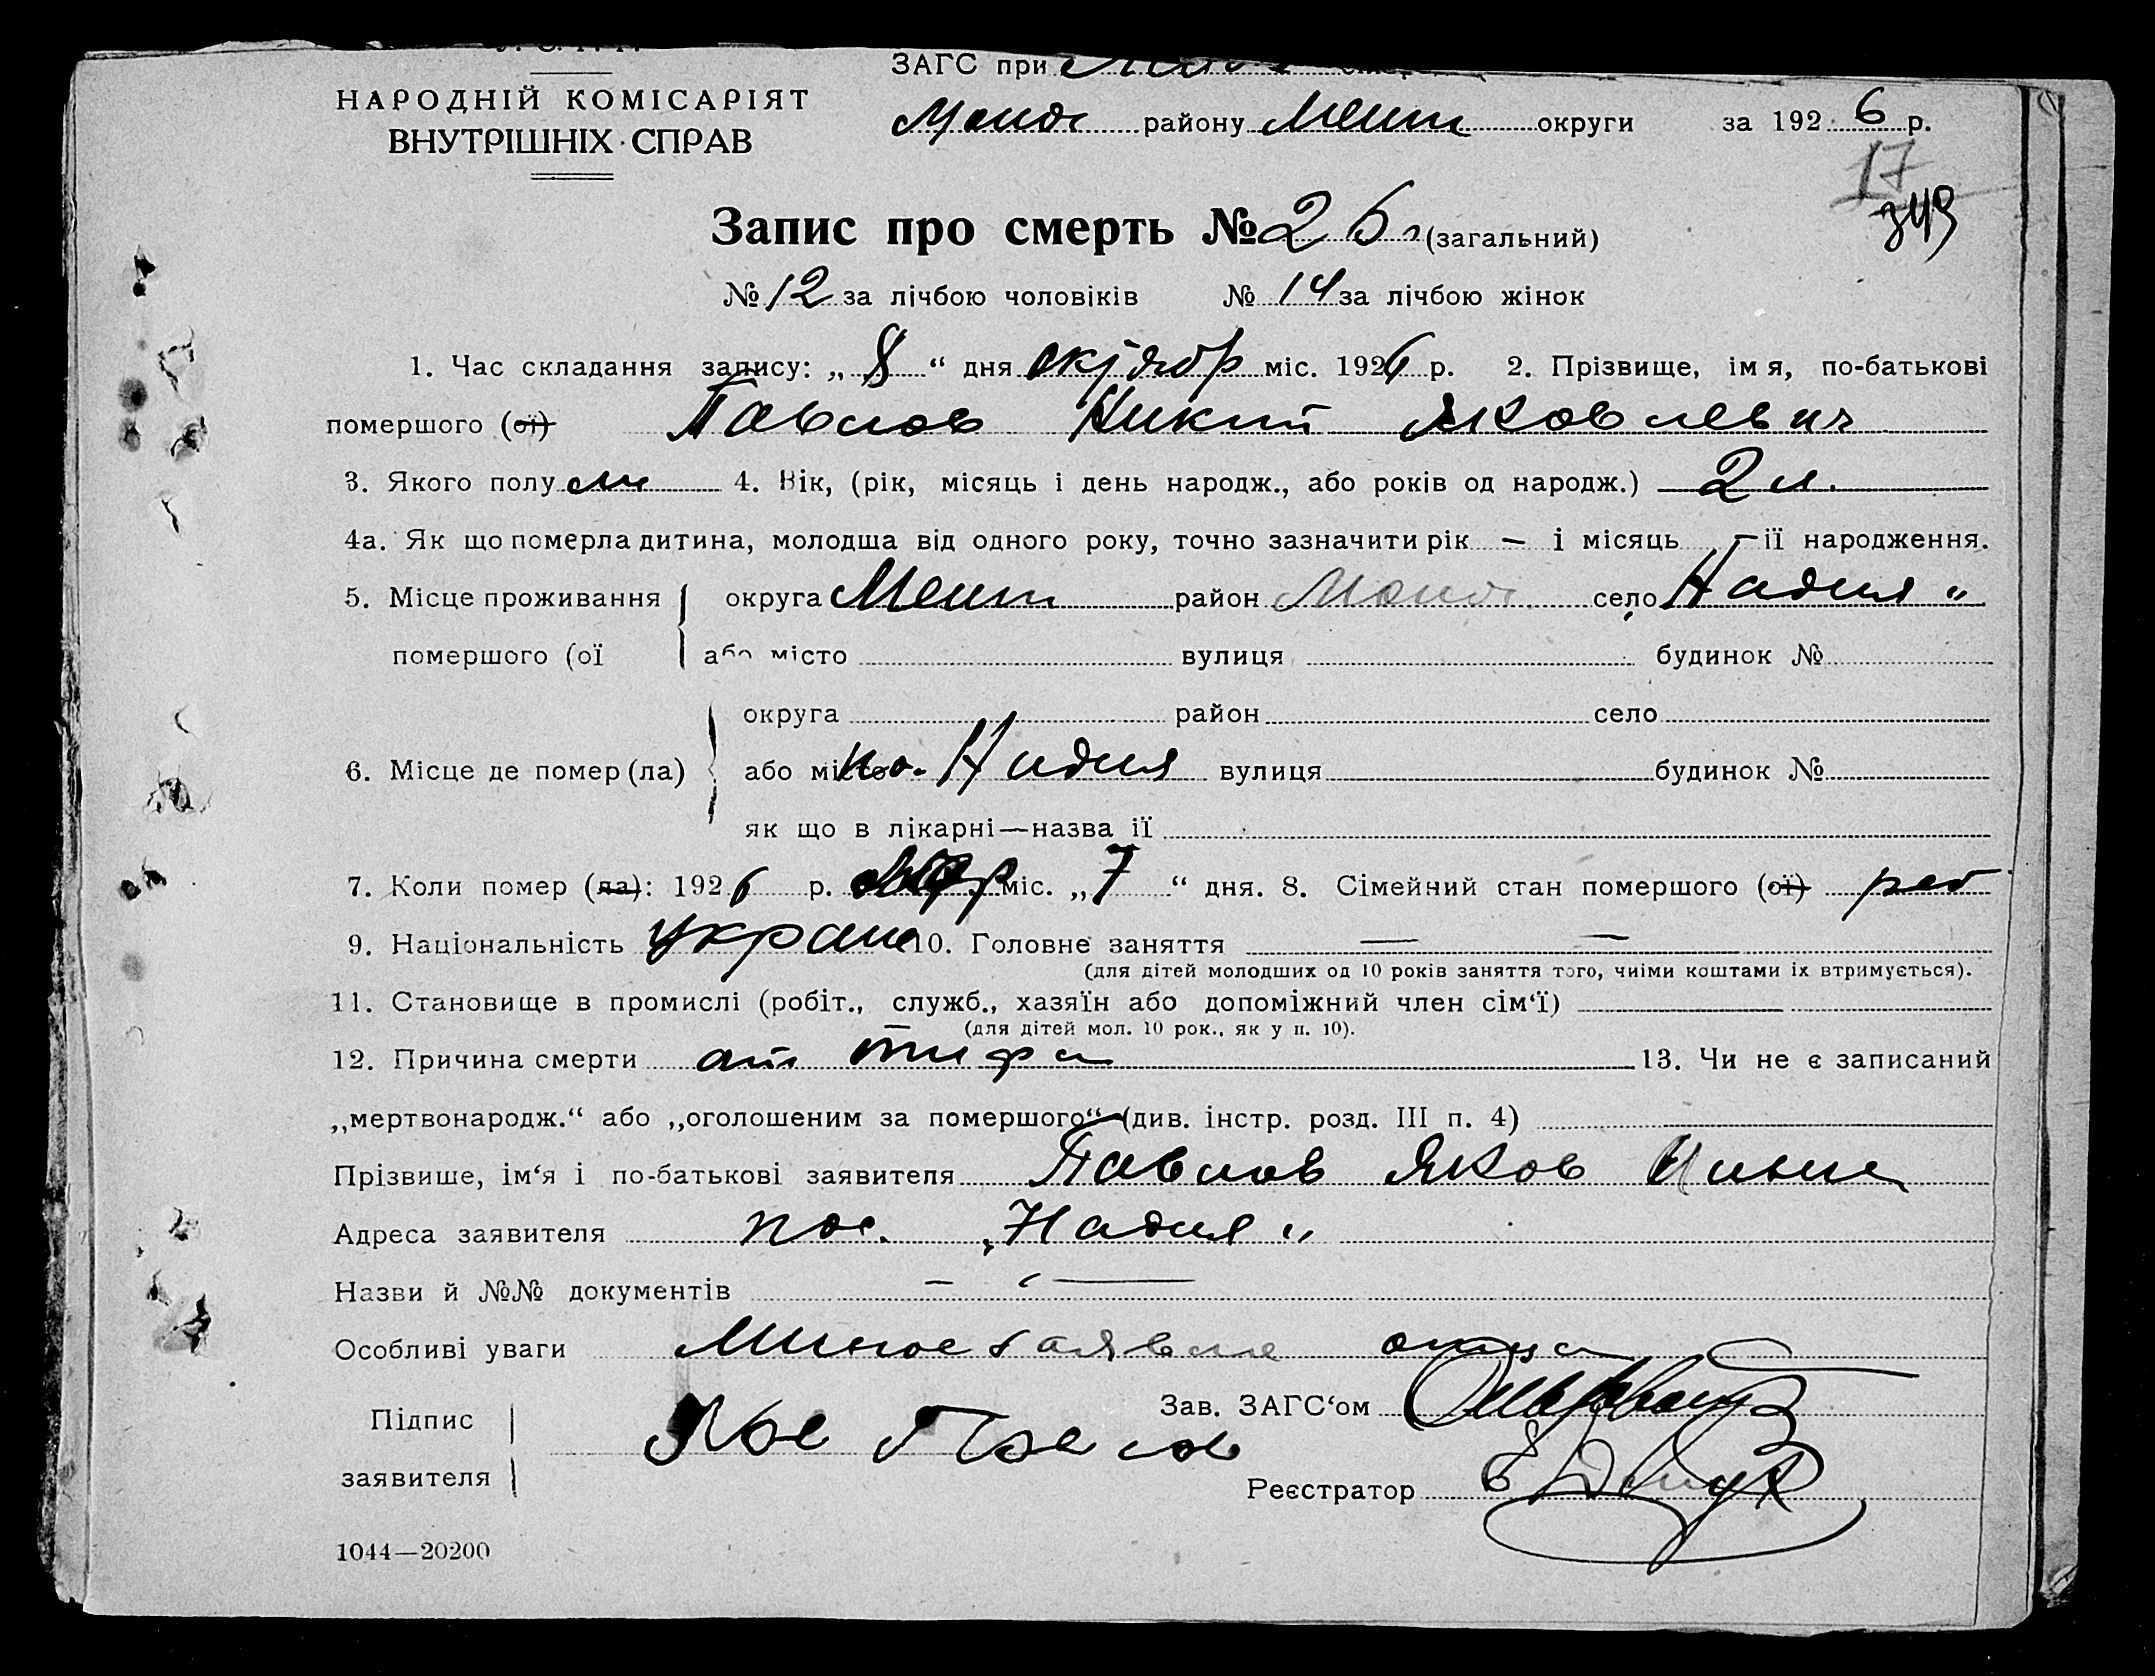 ЗАГС при
НАРОДНІЙ КОМІСАРІЯТ
ВНУТРІШНІХ СПРАВ
району Мелит округи за 1926 р.
17
349
Запис про смерть № 26 (загальний)
№ 12 за лічбою чоловіків № 14 за лічбою жінок
1. Час складання запису: „8“ дня октябр міс. 1926 р. 2. Прізвище, імя, по-батькові
помершого (ої) Павлов Никит Яковлевич
3. Якого полу м 4. Вік, (рік, місяць і день народж., або років од народж.) 2 л.
4а. Як що померла дитина, молодша від одного року, точно зазначити рік — і місяць — її народження.
5. Місце проживання округа Мелит район село Надия"
помершого (ої або місто вулиця будинок №
округа район село
6. Місце де помер (ла) або місто Надия вулиця будинок №
як що в лікарні—назва її
7. Коли помер (ла): 1926 р. міс. „7“ дня. 8. Сімейний стан помершого (ої) реб
9. Національність украин 10. Головне заняття — —
(для дітей молодших од 10 років заняття того, чиїми коштами їх втримується).
11. Становище в промислі (робіт., служб., хазяїн або допоміжний член сім'ї)
(для дітей мол. 10 рок., як у п. 10).
12. Причина смерти от тифа 13. Чи не є записаний
„мертвонародж.“ або „оголошеним за помершого“ (див. інстр. розд. III п. 4)
Прізвище, ім'я і по-батькові заявителя Павлов Яков
Адреса заявителя пос. „Надия"
Назви й №№ документів —
Особливі уваги отца
Підпис Зав. ЗАГС'ом
заявителя
Реєстратор
1044—20200